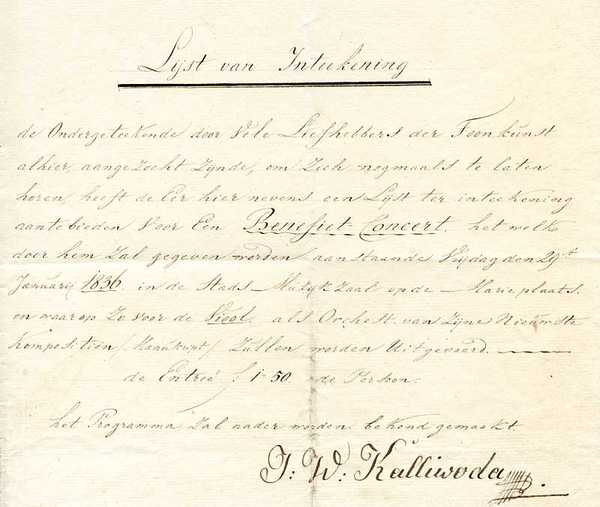 Lijst van Inteekening
de Ondergeteekende door Vele Liefhebbers der Toonkunst
alhier aangezocht Zijnde, om Zich nogmaals te laten
horen, heeft de Eer hier nevens een Lijst ter inteekening
aantebieden Voor Een Benefiet-Concert. het welk
door hem Zal gegeven worden aanstaande Vrijdag den 29st
Januarij 1836 in de Stads-Muzijk Zaal op de Marieplaats.
en waarop Zo voor de Viool als Orchest van Zijne Nieuwste
Komposition / / Zullen worden Uitgevoerd.
de Entreé f 1-50 de Persoon.
het Programma Zal nader worden bekend gemaakt
J: W: Kalliwoda.